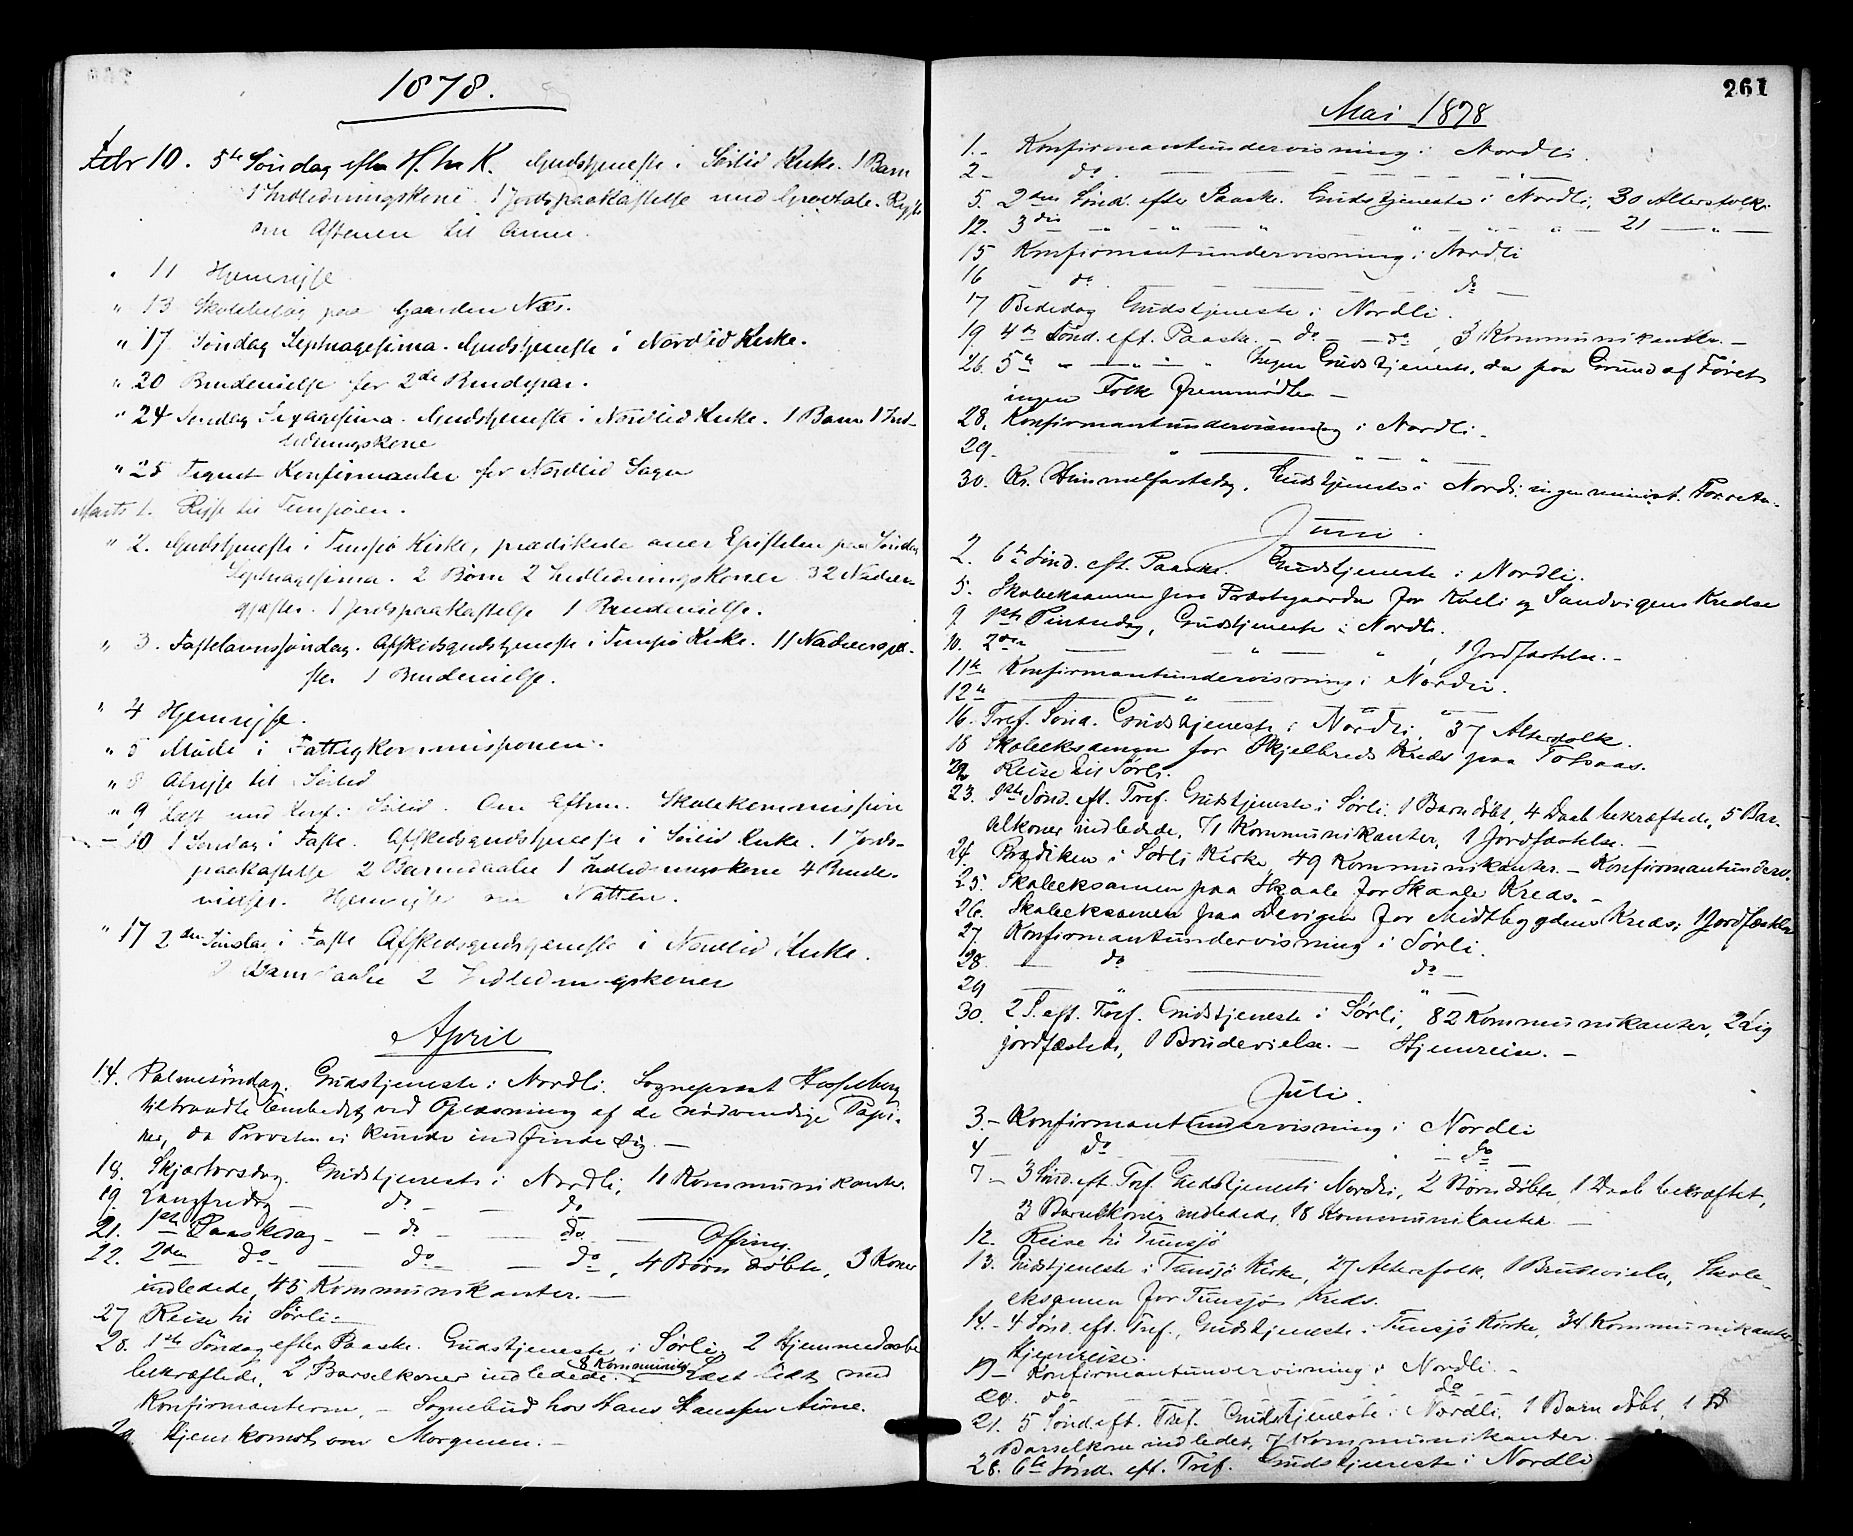 1878.
Febr 10. 5te Søndag efter H. tr. K. Gudstjeneste i Sørlid Kirke. 1 Barn
1 Indledningskone 1 Jordspaakastelse med Gravtale. Rejste
om Aftenen til Annex.
" 11 Hjemrejse
" 13 Skolebesøg paa Gaarden Næs.
" 17 Søndag Septuagesima. Gudstjeneste i Nordlid Kirke.
" 20 Brudevielse for 2de Brudepar.
" 24 Søndag Sexagesima. Gudstjeneste i Nordlid Kirke. 1 Barn 1 Ind-
ledningskone
" 25 Tegnet Konfirmanter for Nordlid Sogn
Marts 1. Rejse til Tunsjøen.
" 2. Gudstjeneste i Tunsjø Kirke, prædikede over Epistelen paa Søndag
Septuagesima. 2 Børn 2 Indledningskoner 32 Nadver-
gjæster. 1 Jordspaakastelse 1 Brudevielse.
" 3. Fastelavnssøndag. Afskedsgudstjeneste i Tunsjø Kirke. 11 Nadvergjæ-
ster 1 Brudevielse.
" 4 Hjemrejse.
" 5 Møde i Fattigkommissionen.
" 8 Afrejse til Sørlid
" 9 Læst med Konf. i Sørlid. Om Efterm. Skolekommission
– 10 1 Søndag i Faste. Afskedsgudstjeneste i Sørlid Kirke. 1 Jords-
paakastelse 2 Barnedaabe 1 Indledningskone 4 Brude-
vielser. Hjemrejste om Natten.
" 17 2den Søndag i Faste Afskedsgudstjeneste i Nordlid Kirke.
2 Barnedaabe 2 Indledningskoner
April
14. Palmesøndag. Gudstjeneste i Nordli. Sogneprest Hasselberg
tiltraadte Embedet ved Oplæsning af de nødvendige Papi-
rer, da Provsten ei kunde indfinde sig. —
18. Skjærtorsdag. Gudstjeneste i Nordli, 11 Kommunikanter.
19. Langfredag — do — — do
21. 1ste Paaskedag — do — — do — Offring.
22. 2den do — do — do, 4 Børn døbte, 3 Koner
indledede, 45 Kommunikanter. —
27 Reise til Sørli. —
28. 1ste Søndag efter Paaske. Gudstjeneste i Sørli, 2 Hjemmedøbte
bekræftede, 2 Barselkoner indledede. 8 Kommunik. Læst lidt med
Konfirmanterne. — Sognebud hos Hans Hanssen
29. Hjemkomst om Morgenen. —
261
Mai 1878
1. – Konfirmantundervisning i Nordli.
2 – do. — — — " —
5. 2den Sønd. efter Paaske. Gudstjeneste i Nordli, 30 Altersfolk.
12. 3die — " — " — " " — " — " — 21 — " —
15 Konfirmantundervisning i Nordli
16 do. — — do —
17 Bededag Gudstjeneste i Nordli.
19 4de Sønd. eft. Paaske. — do — — do, 3 Kommunikanter. —
26. 5te " — " — " Ingen Gudstjeneste, da paa Grund af Føret
ingen Folk fremmødte —
28. Konfirmantundervisning i Nordli.
29. — " — " — " —
30. Kr. Himmelfartsdag. Gudstjeneste i Nordli. ingen minist. Forretn.
Juni.
2. 6te Sønd. eft. Paaske. Gudstjeneste i Nordli.
5. Skoleeksamen paa Præstegaarden for Kveli og Sandvigens Kredse
9. 1ste Pintsedag, Gudstjeneste i Nordli.
10. 2den — " — " , 1 Jordfæstelse. —
11te Konfirmantundervisning i Nordli.
12te — " — " — " —
16. Tref. Sønd. Gudstjeneste i Nordli, 37 Altersfolk.
18 Skoleeksamen for Skjelbreds Kreds paa Tolsaas.
22 Reise til Sørli.
23. 1ste Sønd. eft. Tref. Gudstjeneste i Sørli. 1 Barn døbt, 4 Daab bekræftede, 5 Bar-
selkoner indledede, 71 Kommunikanter, 1 Jordfæstelse. —
24. Prædiken i Sørli Kirke, 49 Kommunikanter. — Konfirmantunderv.
25. Skoleeksamen paa Skaale for Skaale Kreds. —
26. Skoleeksamen paa Devigen for Midtbygdens Kreds; 1 Jordfæstelse
27. Konfirmantundervisning i Sørli.
28. — do — do —
29 — " — " —
30. 2 S. eft. Tref. Gudstjeneste i Sørli, 82 Kommunikanter, 2 Lig
jordfæstede, 1 Brudevielse. — Hjemreise. —
Juli.
3. – Konfirmantundervisning i Nordli
4 — do — do —
7 – 3 Sønd. eft. Tref. Gudstjeneste i Nordli, 2 Børn døbte, 1 Daab bekræftet,
3 Barselkoner indledede, 18 Kommunikanter. —
12. Reise til Tunsjø
13. Gudstjeneste i Tunsjø Kirke, 27 Altersfolk, 1 Brudevielse, Skole-
eksamen for Tunsjø Kreds.
14. – 4 Sønd. eft. Tref., Gudstjeneste i Tunsjø Kirke, 34 Kommunikanter
Hjemreise.
19 – Konfirmantundervisning i Nordli. —
20. do — — do —
21. 5 Sønd. eft. Tref. Gudstjeneste i Nordli, 1 Barn døbt, 1
Barselkone indledet, 7 Kommunikanter. —
28. 6te Sønd. eft. Tref. Gudstjeneste i Nordli